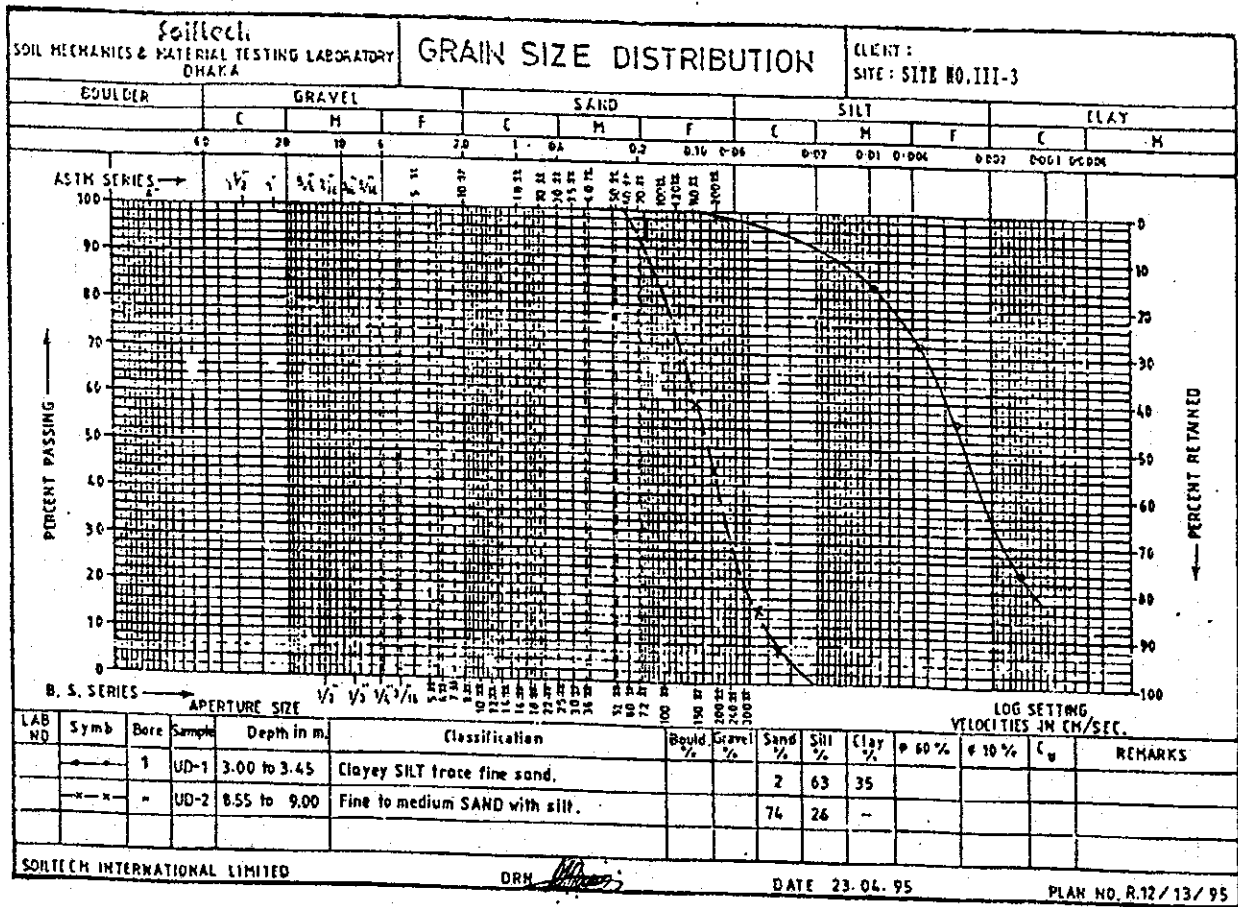 Soiltech
SOIL MECHANICS & MATERIAL TESTING LABORATORY
DHAKA
GRAIN SIZE DISTRIBUTION
CLIENT :
SITE : SITE NO. III-3
BOULDER GRAVEL SAND SILT CLAY
C M F C M F C M F C M
60 20 10 6 2.0 1 0.6 0.2 0.10 0.06 0.02 0.01 0.006 0.002 0.001 0.0006
ASTM SERIES
100 0
90 10
80 20
70 30
60 40
50 50
40 60
30 70
20 80
10 90
0 100
PERCENT PASSING
PERCENT RETAINED
B. S. SERIES
1/2" 1/3" 1/4" 3/16
APERTURE SIZE
LOG SETTING
VELOCITIES IN CM/SEC.
LAB NO Symb Bore Sample Depth in m. Classification Bould. % Gravel % Sand % Silt % Clay % φ 60 % φ 10 % Cu REMARKS
1 UD-1 3.00 to 3.45 Clayey SILT trace fine sand. 2 63 35
-x-x- " UD-2 8.55 to 9.00 Fine to medium SAND with silt. 74 26 -
SOILTECH INTERNATIONAL LIMITED
DRN
DATE 23.04.95
PLAN NO. R.12/13/95